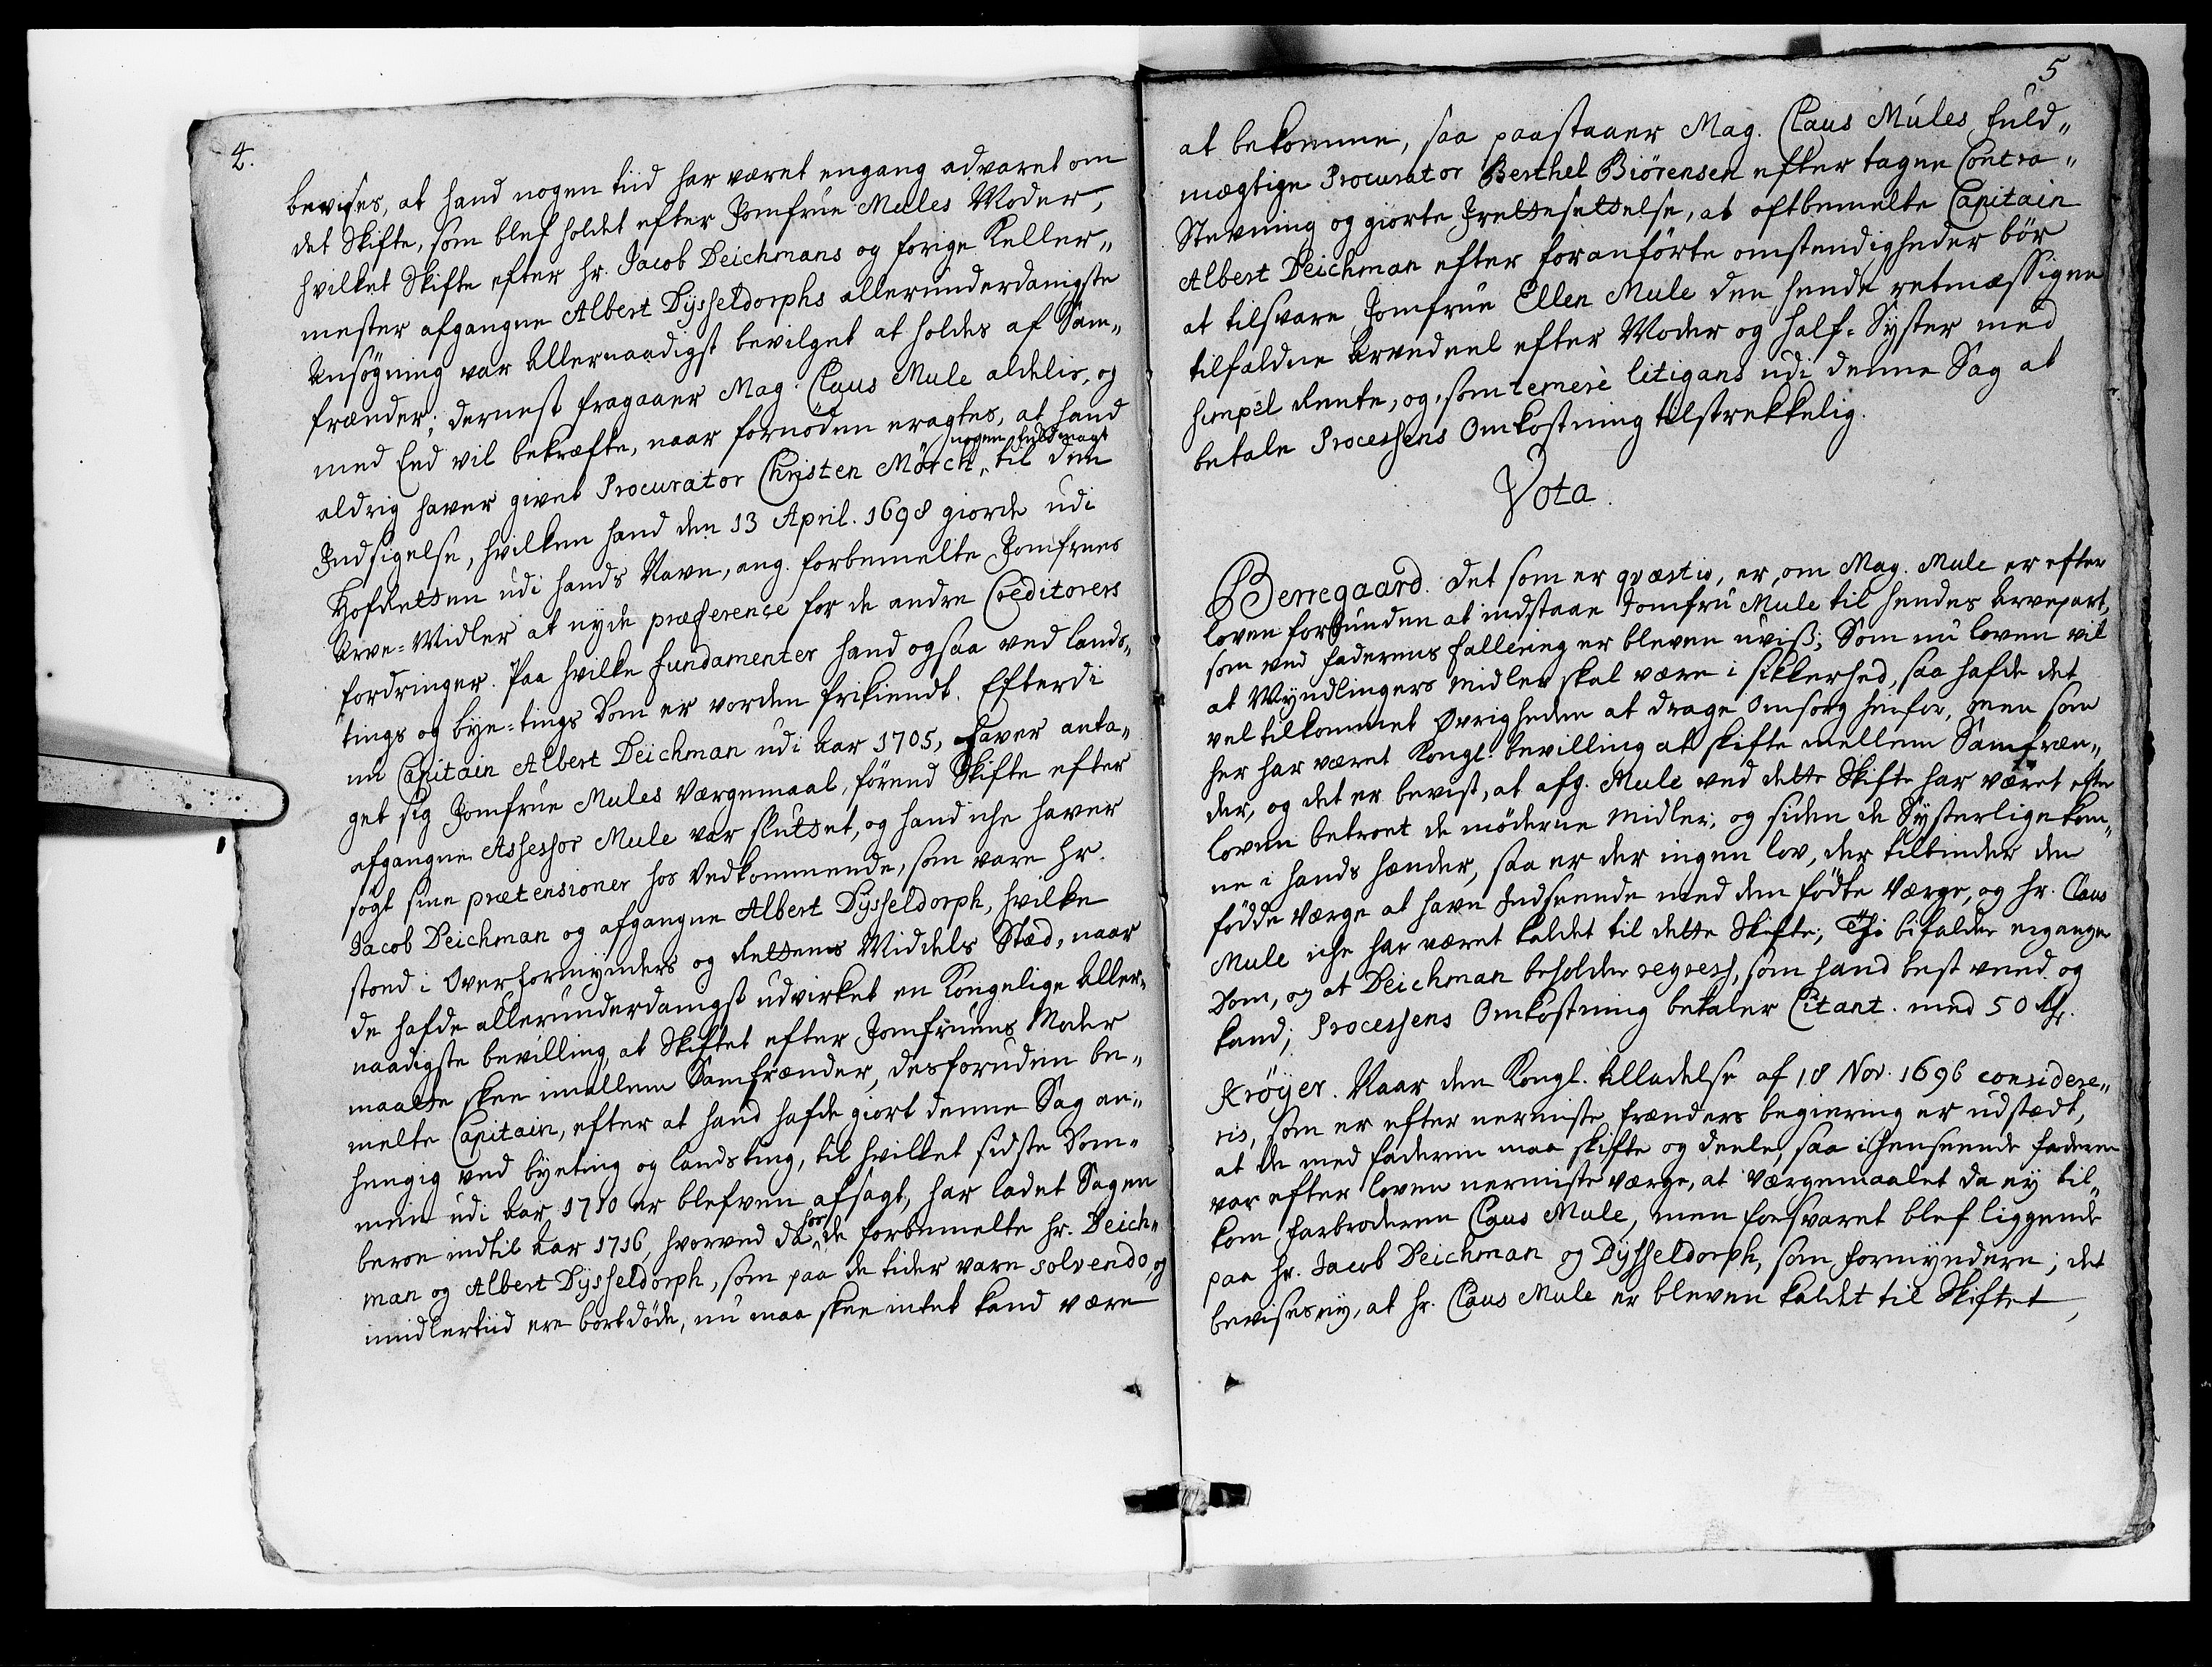 4.
bevises, at hand nogen tiid har været engang advaret om
det Skifte, som blef holdet efter Jomfrue Mules Moder,
hvilket Skifte efter Hr. Jacob Deichmans og forige Keller„
mester afgangne Albert Dÿsseldorphs allerunderdanigste
Ansøgning var Allernaadigst bevilget at holdes af Sam„
frænder; dernest fragaaer Mag. Claus Mule aldelis, og
med Eed vil bekræfte, naar fornøden eragtes, at hand
aldrig haver givet Procurator Christen Mörch nogen fuldmagt til den
Indsigelse, hvilken hand den 13 April. 1698 giorde udi
Hofretten udi hands Navn, ang. forbemelte Jomfrues
Arve-Midler at nyde præference for de andre Creditorers
fordringer. Paa hvilke fundamenter hand ogsaa ved lands„
tings og bye-tings Dom er vorden frikiendt. Efterdi
nu Capitain Albert Deichman udi Aar 1705, haver anta„
get sig Jomfrue Mules Værgemaal, førend Skifte efter
afgangne Assessor Mule var sluttet, og hand iche haver
søgt sine prætensioner hos Vedkommende, som vare Hr.
Jacob Deichman og afgangne Albert Dÿsseldorph, hvilke
stoed i Overformynders og Rettens Middels Stæd, naar
de hafde allerunderdanigst udvirket en Kongelige Aller„
naadigste bevilling, at Skiftet efter Jomfruens Moder
maatte skee imellem Samfrænder, desforuden be„
melte Capitain, efter at hand hafde giort denne Sag an„
hengig ved byeting og landsting, til hvilket sidste Dom„
men udi Aar 1710 er blefven afsagt, har ladet Sagen
beroe indtil Aar 1716, hvorved da hos de forbemelte Hr. Deich„
man og Albert Dÿsseldorph, som paa de tider vare solvendo, og
imidlertiid ere bortdøde, nu maa skee intet kand være
5
at bekomme, saa paastaaer Mag. Claus Mules fuld„
mægtige Procurator Berthel Biörensen efter tagne Contra„
Stevning og giorte Irettesettelse, at oftbemelte Capitain
Albert Deichman efter foranførte omstendigheder bør
at tilsvare Jomfrue Ellen Mule den hende retmæssigne
tilfaldne Arvedeel efter Moder og half-Syster med
simpel Rente, og som temerè litigans udi denne Sag at
betale Processens Omkostning tilstrekkelig.
Vota.
Berregaard. Det som er qvæstio, er, om Mag. Mule er efter
loven forbunden at indstaae Jomfru Mule til hendes Arvepart,
som ved faderens fallering er bleven uviss; Som nu loven vil
at Myndlingers Midler skal være i sikkerhed, saa hafde det
vel tilkommet Øvrigheden at drage Omsorg herfor, men som
her har været Kongl. bevilling at skifte mellem Samfræn„
der, og det er bevist, at afg. Mule ved dette Skifte har været efter
loven betroet de møderne Midler, og siden de Systerlige kom„
ne i hands hænder, saa er der ingen lov, der tilbinder den
fødde Værge at have Indseende med den fødte Værge, og Hr. Claus
Mule iche har været kaldet til dette Skifte; Thi bifalder ergangne
Dom, og at Deichman beholder regress, som hand best veed og
kand; Processens Omkostning betaler Citant. med 50 Rdr.
Kröÿer. Naar den Kongl. tilladelse af 18 Nov. 1696 considere„
ris, som er efter nermeste frænders begiering er udstædt,
at de med faderen maa skifte og deele, saa i henseende faderen
var efter loven nermeste værge, at Værgemaalet da ey til„
kom farbroderen Claus Mule, men forsvaret blef liggende
paa Hr. Jacob Deichman og Dÿsseldorph, som formyndere; det
bevises ey, at Hr. Claus Mule er bleven kaldet til Skiftet,